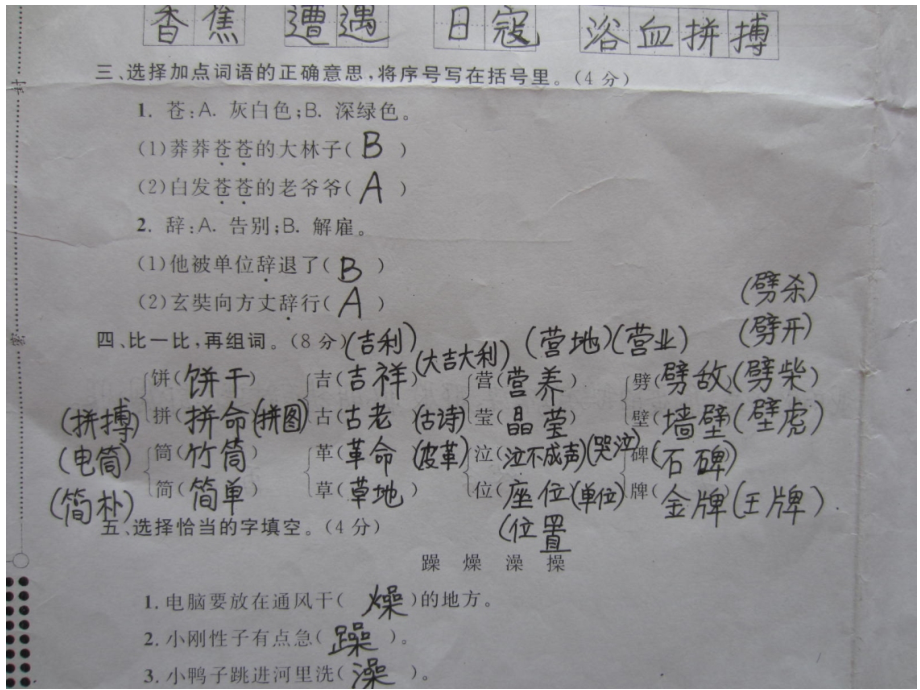 香蕉 遭遇 日寇 浴血拼搏
三、选择加点词语的正确意思,将序号写在括号里。(4分)
1. 苍:A. 灰白色;B. 深绿色。
(1)莽莽苍苍的大林子( B )
(2)白发苍苍的老爷爷( A )
2. 辞:A. 告别;B. 解雇。
(1)他被单位辞退了( B )
(劈杀)
(2)玄奘向方丈辞行( A )
(劈开)
四、比一比,再组词。(8分)(吉利) (大吉大利) (营地)(营业)
饼(饼干) 吉(吉祥) 营(营养) 劈(劈敌)(劈柴)
(拼搏) 拼(拼命)(拼图) 古(古老) (古诗) 莹(晶莹) 壁(墙壁)(壁虎)
(电筒) 筒(竹筒) 革(革命) (皮革) 泣(泣不成声)(哭泣) 碑(石碑)
(简朴) 简(简单) 草(草地) 位(座位)(单位) 牌(金牌)(王牌)
(位置
五、选择恰当的字填空。(4分)
躁 燥 澡 操
1. 电脑要放在通风干( 燥 )的地方。
2. 小刚性子有点急( 躁 )。
3. 小鸭子跳进河里洗( 澡 )。